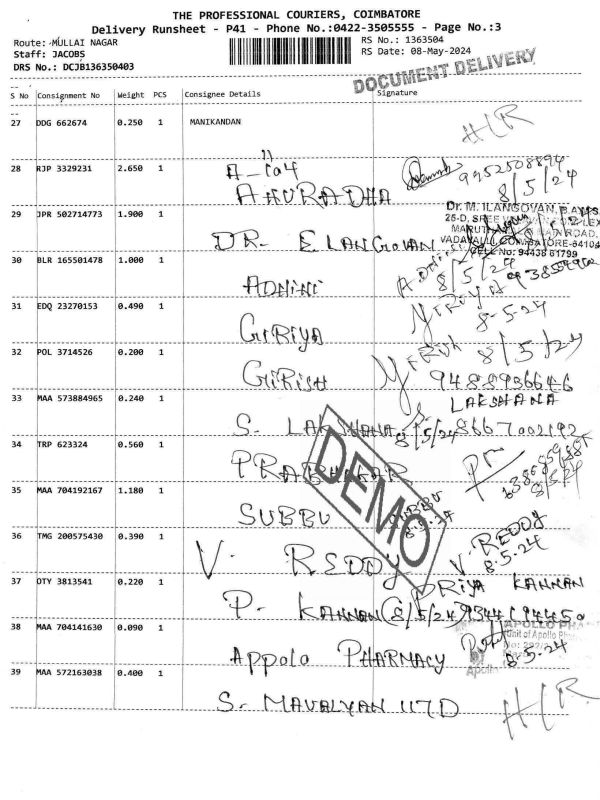 THE PROFESSIONAL COURIERS, COIMBATORE
Delivery Runsheet - P41 - Phone No.:0422-3505555 - Page No.:3
Route: MULLAI NAGAR RS No.: 1363504
Staff: JACOBS RS Date: 08-May-2024
DRS No.: DCJB136350403
DOCUMENT DELIVERY
S No Consignment No Weight PCS Consignee Details Signature
27 DDG 662674 0.250 1 MANIKANDAN
28 RJP 3329231 2.650 1 ANURADHA
8/5/24
29 JPR 502714773 1.900 1 DR. ELANGOVAN
Dr. M. ILANGOVAN
30 BLR 165501478 1.000 1
8/5/24
31 EDQ 23270153 0.490 1 GIRIYA
8-5-24
32 POL 3714526 0.200 1 GIRISH
8/5/24
9488936646
33 MAA 573884965 0.240 1 S. LAKSHANA
LAKSHANA
8/5/24 8667002192
34 TRP 623324 0.560 1 PRABHAKAR
35 MAA 704192167 1.180 1 SUBBU
SUBBU
8-5-24
DEMO
36 TMG 200575430 0.390 1 V. REDDY
V. REDDY
8-5-24
37 OTY 3813541 0.220 1 P. KANNAN
PRIYA KANNAN
8/5/24
38 MAA 704141630 0.090 1 Appolo PHARMACY
8-5-24
39 MAA 572163038 0.400 1 S.